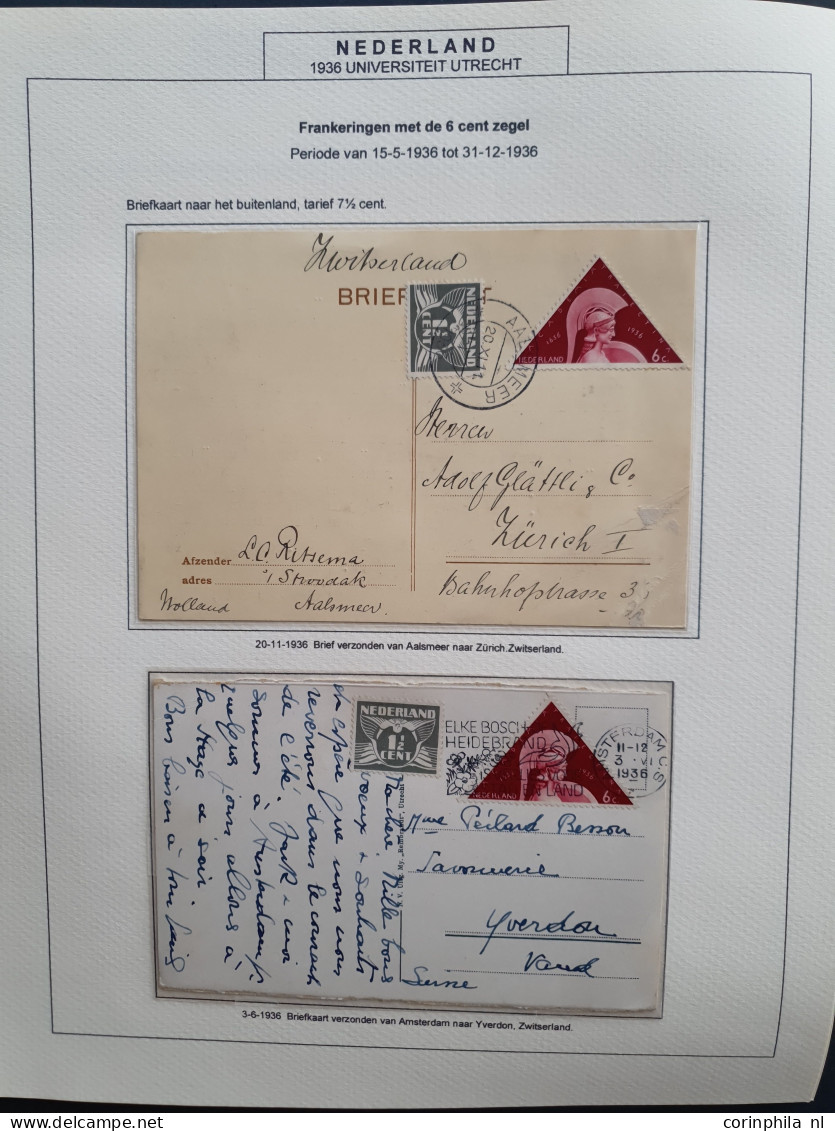 NEDERLAND
1936 UNIVERSITEIT UTRECHT
Frankeringen met de 6 cent zegel
Periode van 15-5-1936 tot 31-12-1936
Briefkaart naar het buitenland, tarief 7½ cent.
Zwitserland
BRIEF
NEDERLAND
1½
CENT
AALSMEER
20.XI.11
1636 1936
NEDERLAND 6c
Herren
Adolf Glättli & Co
Zürich I
Bahnhofstrasse
Afzender L.C. Ritsema
adres
Holland Aalsmeer
20-11-1936 Brief verzonden van Aalsmeer naar Zürich.Zwitserland.
NEDERLAND
1½
CENT
ELKE BOSCH
HEIDEBRAND
AMSTERDAM C.S
11-12
3 VI
1936
1936
NEDERLAND 6c
Ma chère Mille bons
voeux & souhaits
et espère que nous nous
revenons dans le
de l'été. Jack & moi
sommes à Amsterdam &
quelques jours allons à
La Haye ce soir
Bons baisers à
Mme Péclard Besson
Savonnerie
Yverdon
Vaud
Suisse
3-6-1936 Briefkaart verzonden van Amsterdam naar Yverdon, Zwitserland.
www.delcampe.net
corinphila nl